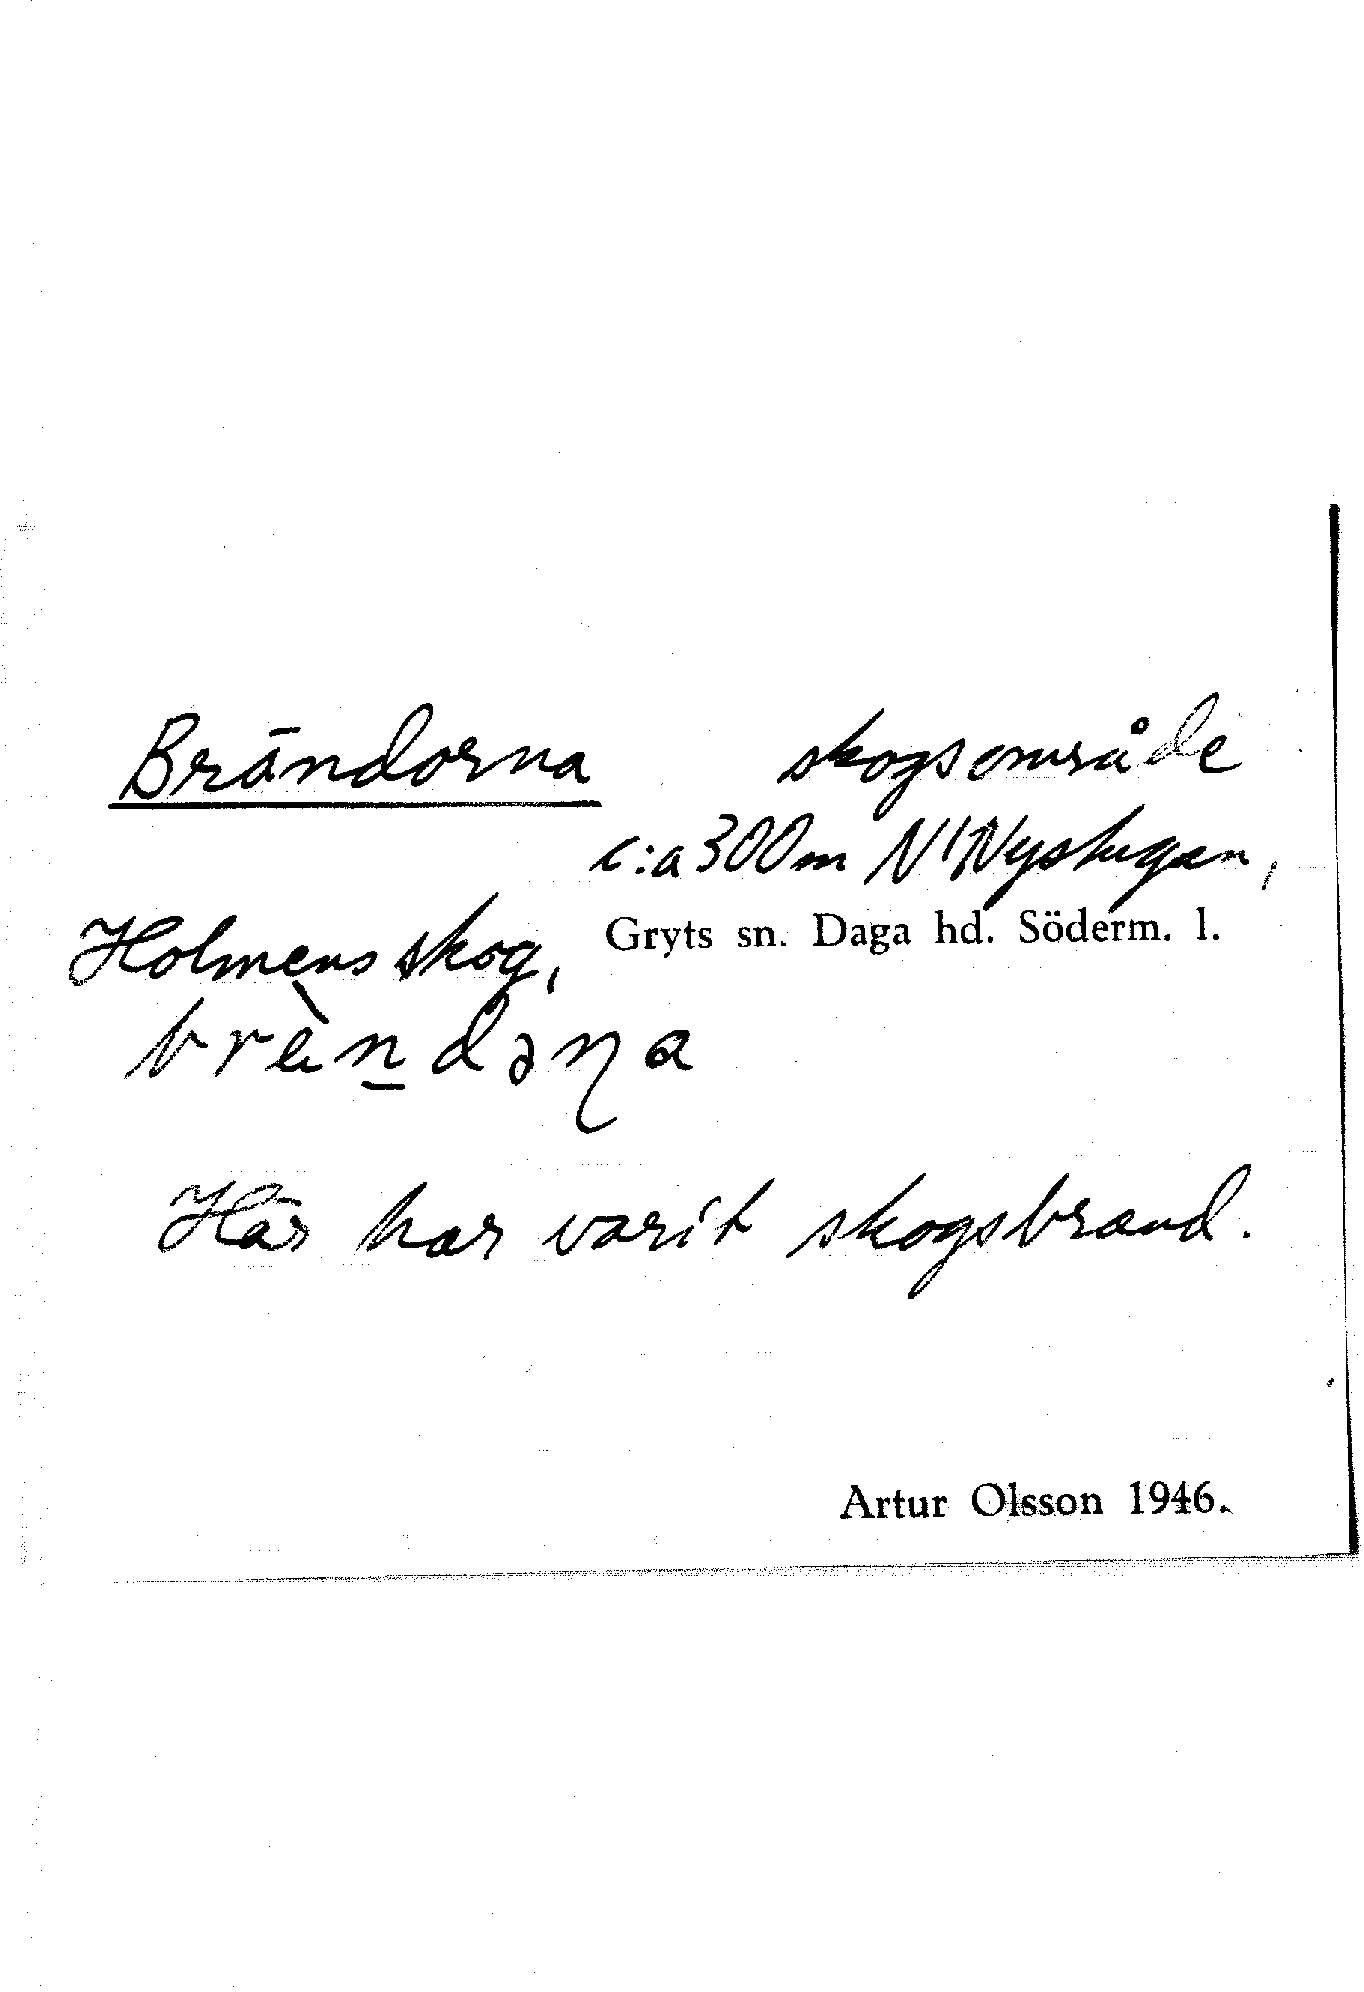 Brändorna skogsområde
c:a 300m N! Nystugan,
Holmens skog, Gryts sn. Daga hd. Söderm. l.
brèn̲dəɳa
Här har varit skogsbrand.
Artur Olsson 1946.